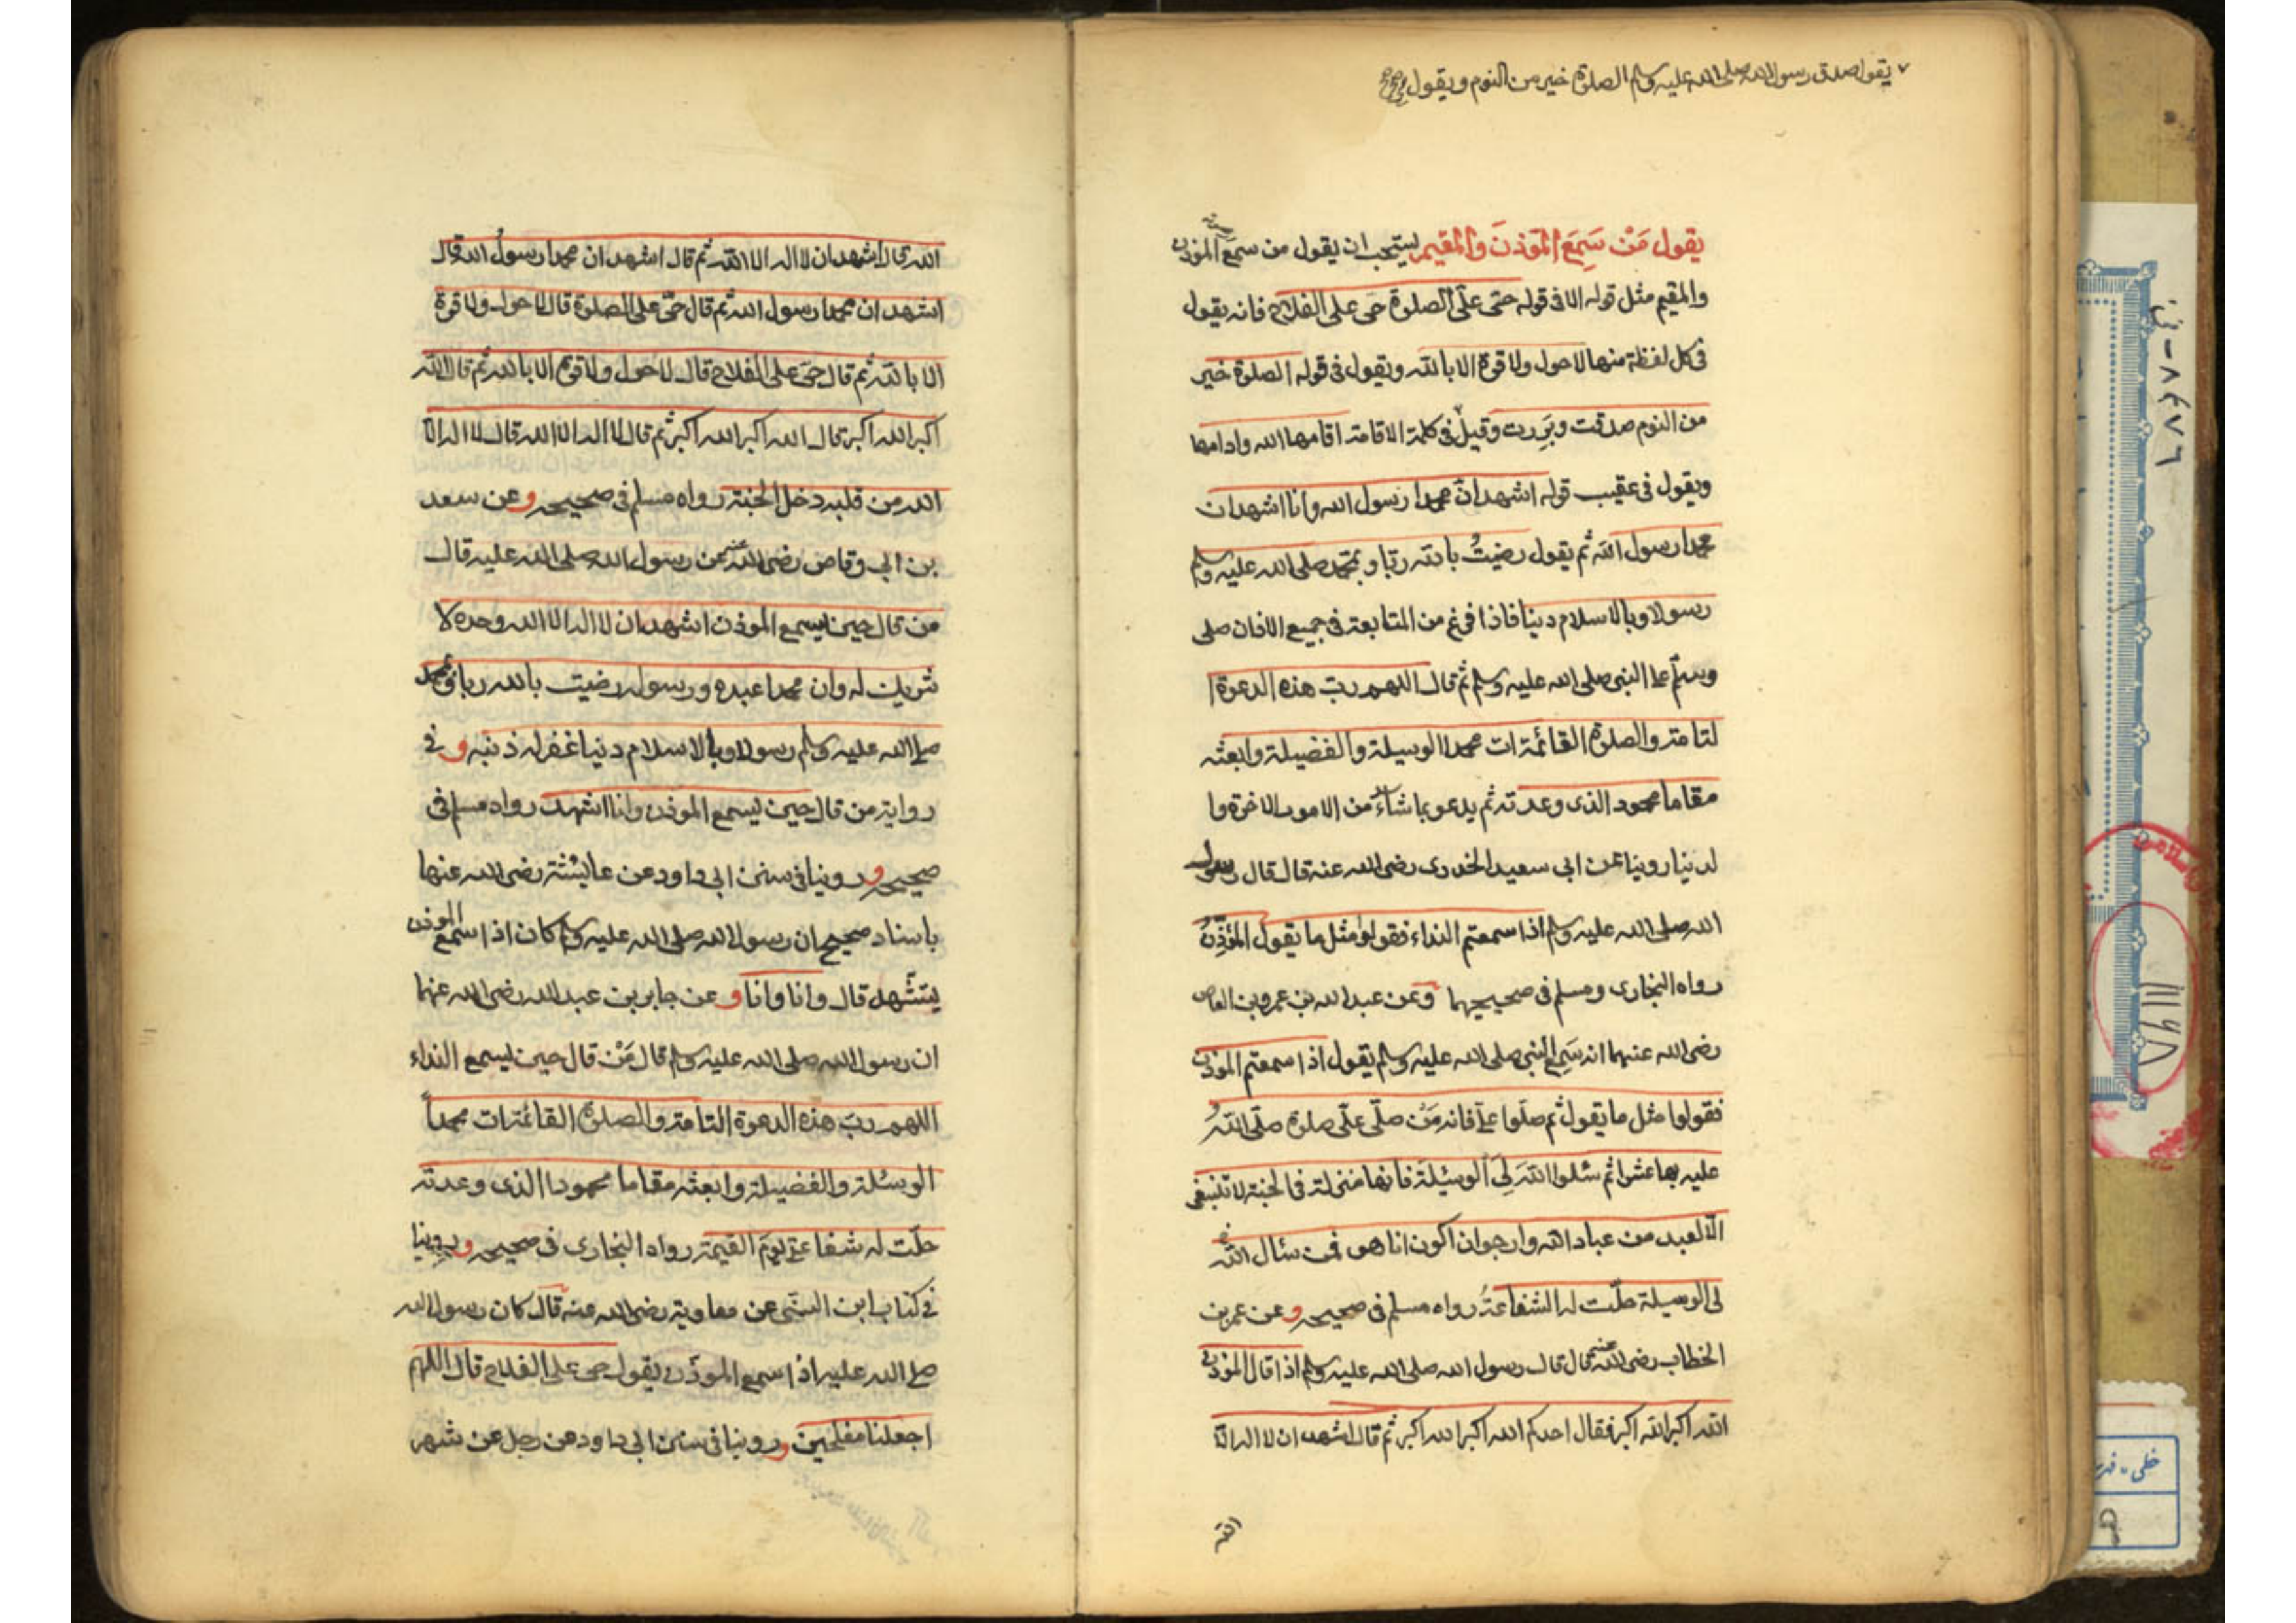 يقول صدق رسول الله صلى الله عليه وسلم الصلوة خير من النوم ويقول
يقول مَنْ سَمِعَ المؤذنَ والمقيم يستحب ان يقول من سمع المؤذن
والمقيم مثل قوله الا فى قوله حتى على الصلوة حى على الفلاح فانه يقول
فى كل لفظة منها لاحول ولا قوة الا بالله ويقول فى قوله الصلوة خير
من النوم صدقت وبَرِرت وقيل فى كلمة الاقامة اقامها الله وادامها
ويقول فى عقيب قوله اشهد انّ محمدا رسول الله وانا اشهد ان
محمدا رسول الله ثم يقول رضيتُ بالله ربّا وبمحمد صلى الله عليه وسلم
رسولا وبالاسلام دينا فاذا فرغ من المتابعة فى جميع الاذان صلى
وسلّم على النبى صلى الله عليه وسلم ثم قال اللهم ربّ هذه الدعوة ا
لتامة والصلوة القائمة ات محمدا الوسيلة والفضيلة وابعثه
مقاما محمود الذى وعدته ثم يدعو بما شاء من الامور الاخرة وا
لدنيا روينا عن ابى سعيد الخدرى رضى الله عنه قال قال رسول
الله صلى الله عليه وسلم اذا سمعتم النداء فقولوا مثل ما يقول المؤذِّنُ
رواه البخارى ومسلم فى صحيحيهما وعن عبد الله بن عمرو بن العاص
رضى الله عنهما انه سَمِع النبى صلى الله عليه وسلم يقول اذا سمعتم المؤذن
فقولوا مثل ما يقول ثم صلّوا علىّ فانه مَنْ صلّى علىّ صلوة صلّى اللهُ
عليه بها عشرا ثم سئلوا اللهَ لِىَ الوسيلَةَ فانها منزلة فى الجنة لا تنبغى
الّا لعبد من عباد الله وارجو ان اكون انا هو فمن سئال الله
لى الوسيلة حلّت له الشفاعةُ رواه مسلم فى صحيحه وعن عمر بن
الخطاب رضى الله عنه قال قال رسول الله صلى الله عليه وسلم اذا قال المؤذن
الله اكبر الله اكبر فقال احدكم الله اكبر الله اكبر ثم قال اشهد ان لا اله الّا
الله
الله قال اشهد ان لا اله الا الله ثم قال اشهد ان محمدا رسولُ الله قال
اشهد ان محمدا رسول الله ثم قال حىّ على الصلوة قال لا حول ولا قوة
الا بالله ثم قال حىّ على الفلاح قال لا حول ولا قوة الا بالله ثم قال الله
اكبر الله اكبر قال الله اكبر الله اكبر ثم قال لا اله الا الله قال لا اله الّا
الله من قلبه دخل الجنة رواه مسلم فى صحيحه وعن سعد
بن ابى وقاص رضى الله عنه عن رسول الله صلى الله عليه قال
من قال حين يسمع المؤذن اشهد ان لا اله الا الله وحده لا
شريك له وان محمدا عبده ورسوله رضيت بالله ربا وبمحمد
صلى الله عليه وسلم رسولا وبالاسلام دينا غفر له ذنبه و فى
رواية من قال حين يسمع المؤذن وانا اشهد رواه مسلم فى
صحيحه و روينا فى سنن ابى داود عن عايشة رضى الله عنها
باسناد صحيح ان رسول الله صلى الله عليه وسلم كان اذا سمع المؤذن
يتشّهد قال وانا وانا و عن جابر بن عبد الله رضى الله عنهما
ان رسول الله صلى الله عليه وسلم قال مَنْ قال حين يسمع النداء
اللهم ربّ هذه الدعوة التامة والصلوة القائمة ات محمداً
الوسئلة والفضيلة وابعثه مقاما محمودا الذى وعدته
حلّت له شفاعتى يومَ القيمة رواه البخارى فى صحيحه و روينا
فى كتاب ابن السنّى عن معاوية رضى الله عنه قال كان رسول الله
صلى الله عليه اذا سمع المؤذّن يقول حى على الفلاح قال اللهم
اجعلنا مفلحين و روينا فى سنن ابى داود عن رجل عن شهر
٨٤٧٦ - ض
١١١٩٨
خطى - فهر